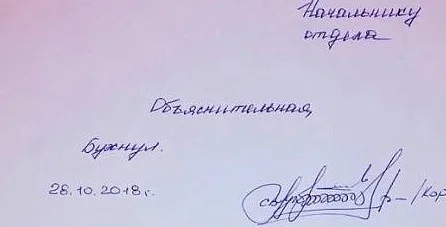 Начальнику
отдела
Объяснительная
Бухнул.
28.10.2018г.
/Кор